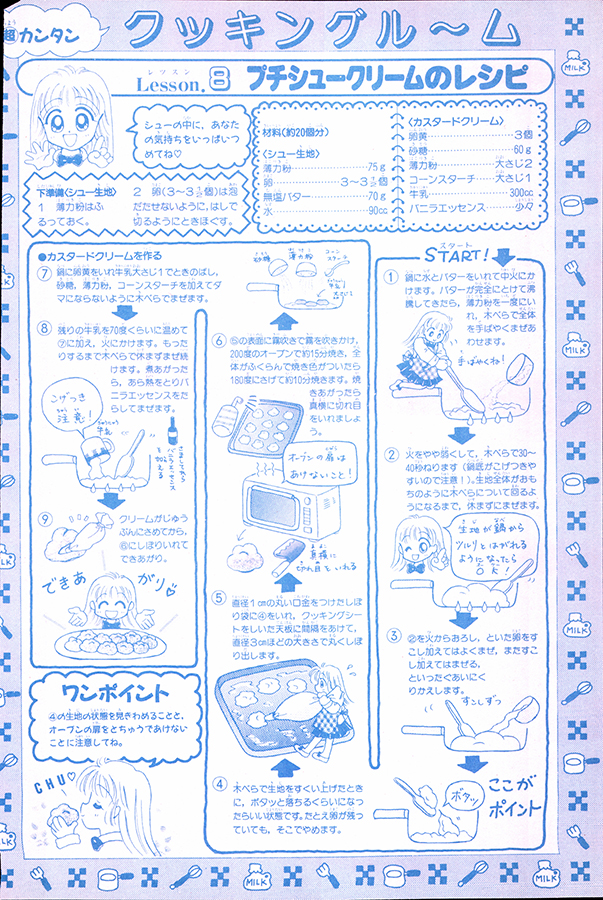 超カンタン
クッキングル〜ム
レッスン
Lesson.8 プチシュークリームのレシピ
シューの中に、あなた
の気持ちをいっぱいつ
めてね♡
下準備〈シュー生地〉
1 薄力粉はふ
るっておく。
2 卵(3〜3½個)は泡
だたせないように、はしで
切るようにときほぐす。
材料(約20個分)
〈シュー生地〉
薄力粉 75g
卵 3〜3½個
無塩バター 70g
水 90cc
〈カスタードクリーム〉
卵黄 3個
砂糖 60g
薄力粉 大さじ2
コーンスターチ 大さじ1
牛乳 300cc
バニラエッセンス 少々
スタート
START!
① 鍋に水とバターをいれて中火にか
けます。バターが完全にとけて沸
騰してきたら、薄力粉を一度にい
れ、木べらで全体
を手ばやくまぜあ
わせます。
手ばやくね!
② 火をやや弱くして、木べらで30〜
40秒ねります(鍋底がこげつきや
すいので注意!)。生地全体がおも
ちのように木べらについて回るよ
うになるまで、休まずにまぜます。
生地が鍋から
ツルリとはがれる
ようになったら
OK!
③ ②を火からおろし、といた卵をす
こし加えてはよくまぜ、またすこ
し加えてはまぜる、
といったぐあいにく
りかえします。
すこしずつ
ボタッ
ここが
ポイント
④ 木べらで生地をすくい上げたとき
に、ボタッと落ちるくらいになっ
たらいい状態です。たとえ卵が残っ
ていても、そこでやめます。
⑤ 直径1cmの丸い口金をつけたしぼ
り袋に④をいれ、クッキングシー
トをしいた天板に間隔をあけて、
直径3cmほどの大きさで丸くしぼ
り出します。
⑥ ⑤の表面に霧吹きで霧を吹きかけ、
200度のオーブンで約15分焼き、全
体がふくらんで焼き色がついたら
180度にさげて約10分焼きます。焼
きあがったら
真横に切れ目
をいれましょ
う。
オーブンの扉は
あけないこと!
真横に
切れ目をいれる
●カスタードクリームを作る
⑦ 鍋に卵黄をいれ牛乳大さじ1でときのばし、
砂糖、薄力粉、コーンスターチを加えてダ
マにならないように木べらでまぜます。
砂糖
薄力粉
コーンスターチ
牛乳
大さじ1
⑧ 残りの牛乳を70度くらいに温めて
⑦に加え、火にかけます。もった
りするまで木べらで休まずまぜ続
けます。煮あがった
ら、あら熱をとりバ
ニラエッセンスをた
らしてまぜます。
こげつき
注意!
牛乳
バニラエッセンス
を加える
⑨ クリームがじゅう
ぶんにさめてから、
⑥にしぼりいれて
できあがり。
できあがり♡
ワンポイント
④の生地の状態を見きわめることと、
オーブンの扉をとちゅうであけない
ことに注意してね。
CHU♡
MILK
MILK
MILK
MILK
MILK
MILK